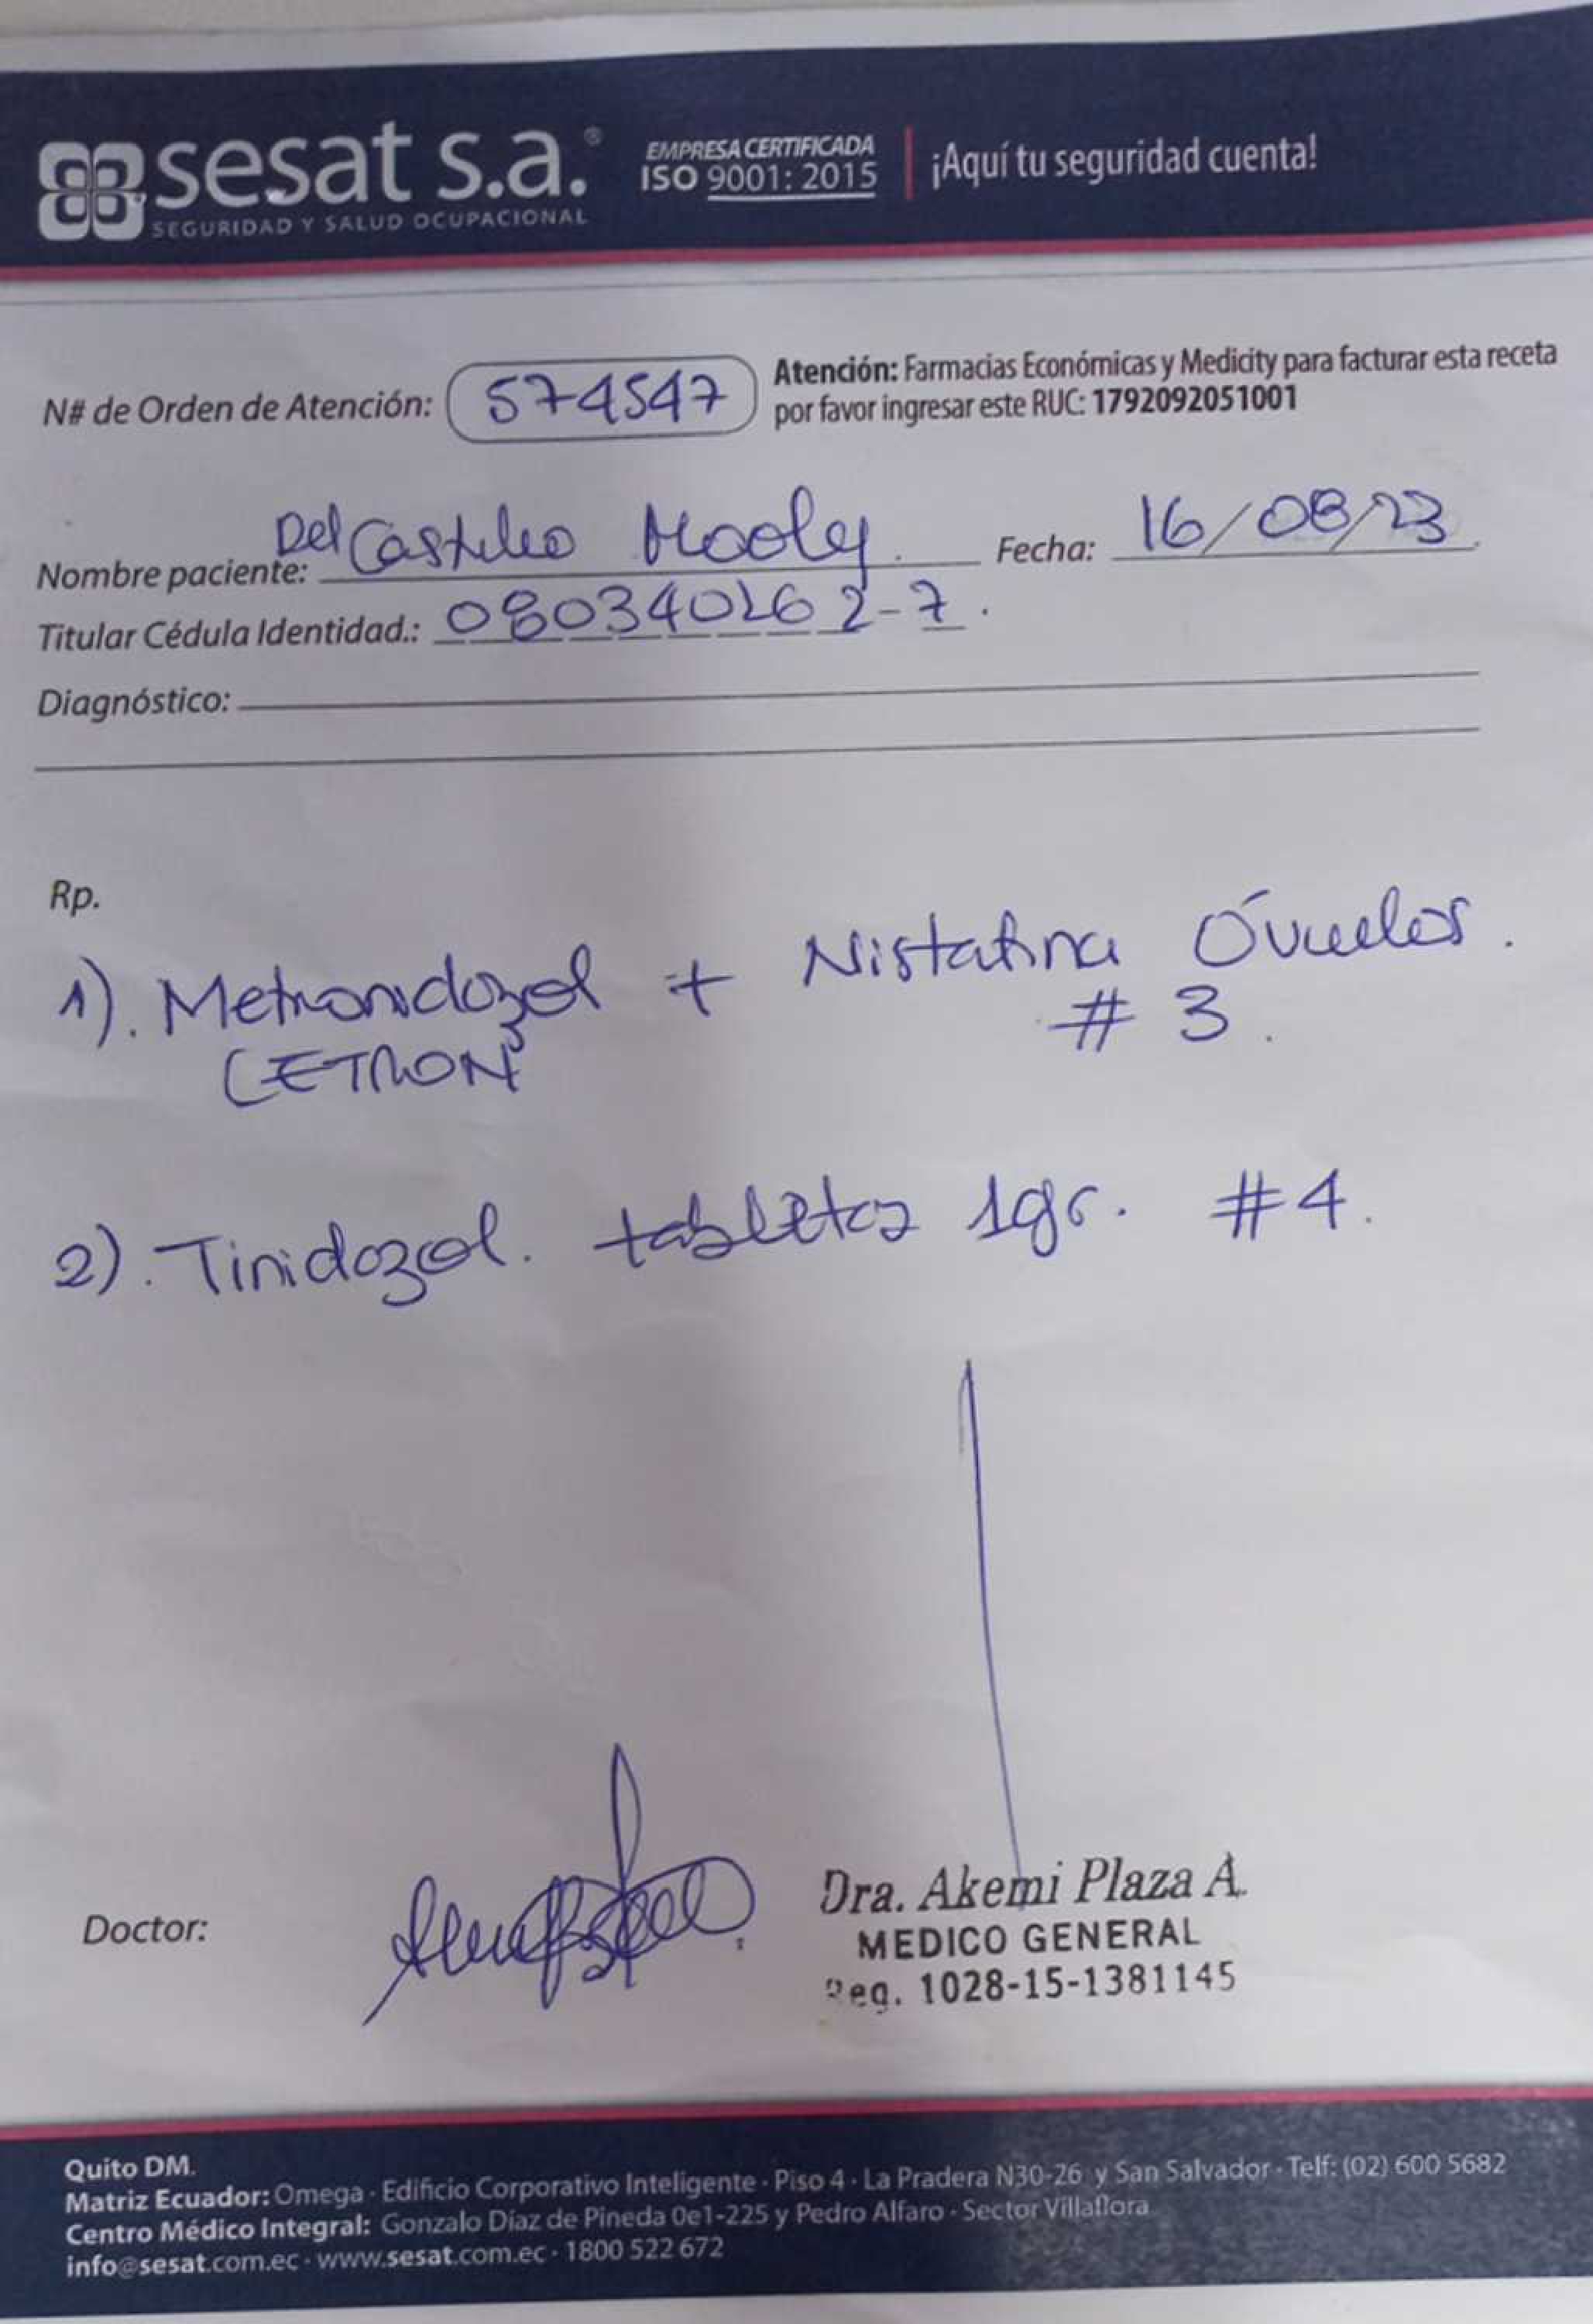 sesat s.a.®
SEGURIDAD Y SALUD OCUPACIONAL
EMPRESA CERTIFICADA
ISO 9001: 2015
¡Aquí tu seguridad cuenta!
N# de Orden de Atención: 574547
Atención: Farmacias Económicas y Medicity para facturar esta receta
por favor ingresar este RUC: 1792092051001
Nombre paciente: Del Castillo Fecha: 16/08/23
Titular Cédula Identidad.: 080340262-7.
Diagnóstico:
Rp.
1). Metronidazol + Nistatina Óvulos.
# 3.
CETRON
2). Tinidazol. tabletas 1gr. #4.
Doctor:
Dra. Akemi Plaza A.
MEDICO GENERAL
Reg. 1028-15-1381145
Quito DM.
Matriz Ecuador: Omega · Edificio Corporativo Inteligente · Piso 4 · La Pradera N30-26 y San Salvador · Telf: (02) 600 5682
Centro Médico Integral: Gonzalo Díaz de Pineda 0e1-225 y Pedro Alfaro · Sector Villaflora
info@sesat.com.ec · www.sesat.com.ec · 1800 522 672